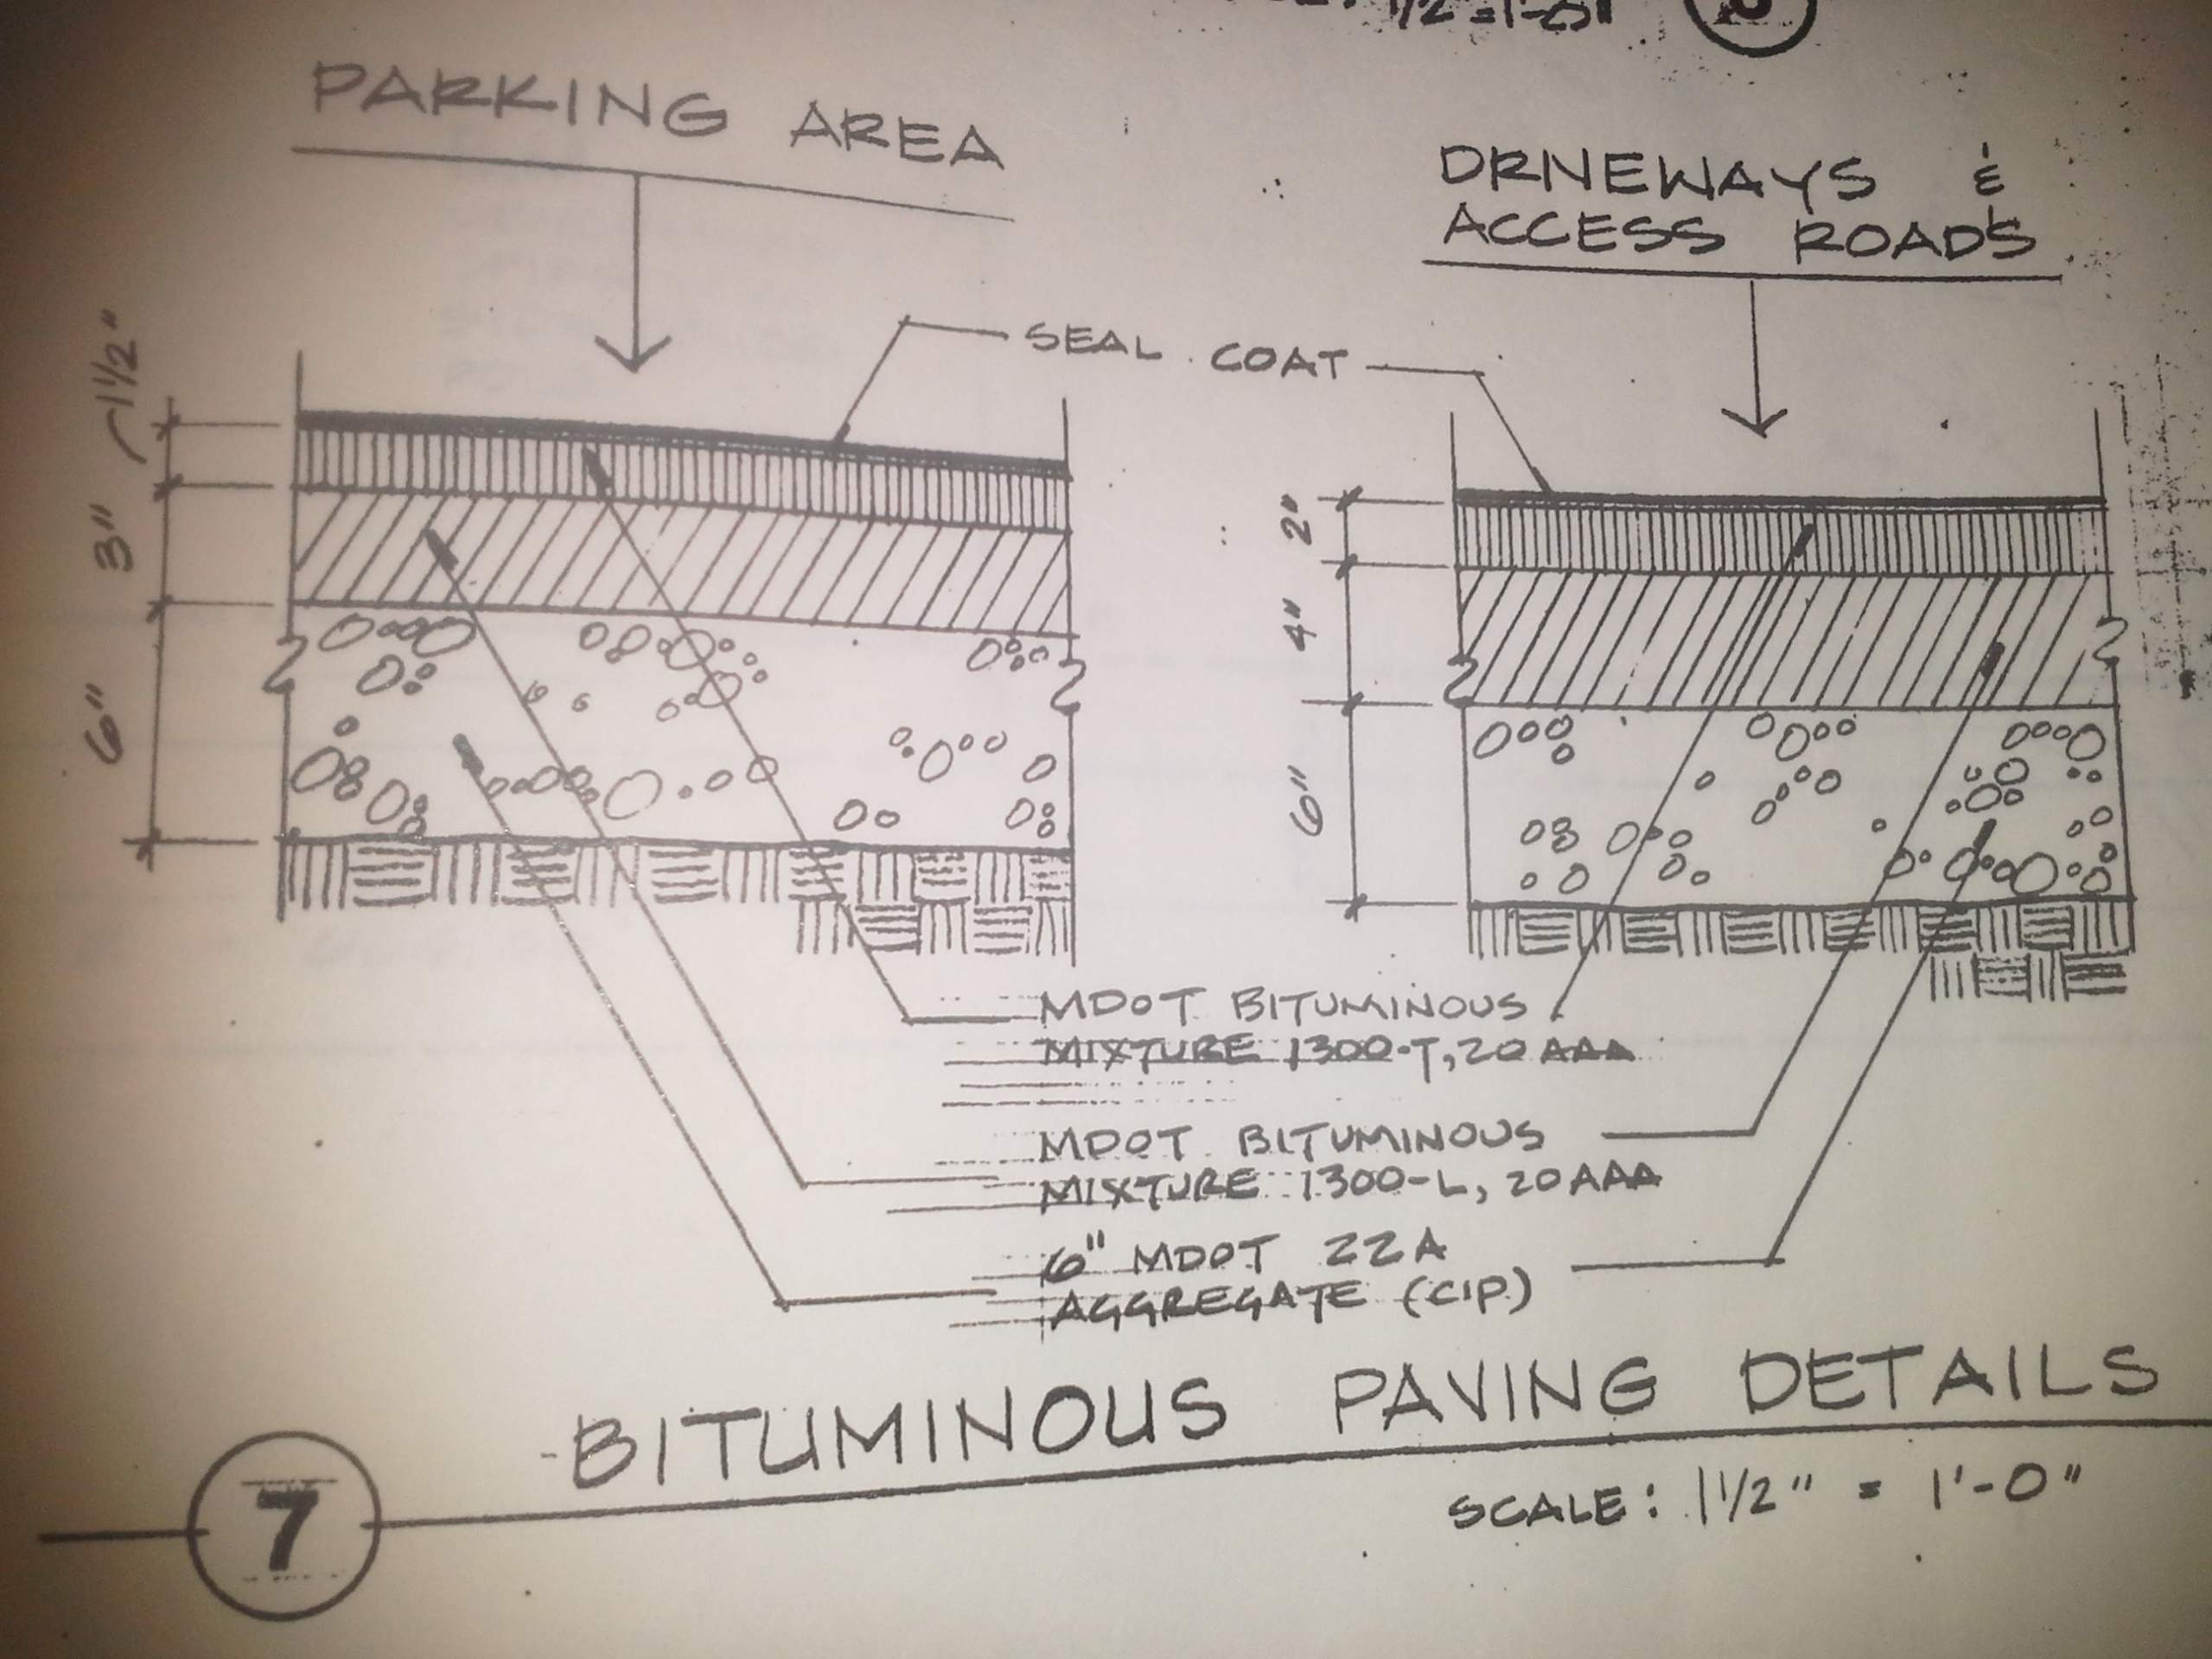 1/2"=1'-0"
PARKING AREA
DRIVEWAYS &
ACCESS ROADS
SEAL COAT
1 1/2"
3"
6"
2"
4"
6"
MDOT BITUMINOUS
MIXTURE 1300-T, 20AAA
MDOT BITUMINOUS
MIXTURE 1300-L, 20AAA
6" MDOT 22A
AGGREGATE (CIP)
7
BITUMINOUS PAVING DETAILS
SCALE: 1 1/2" = 1'-0"